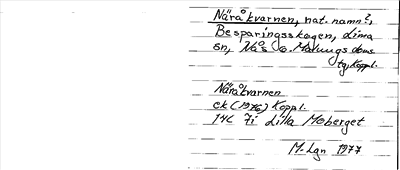 Näråkvarnen, nat. namn?,
Besparingsskogen, Lima
sn, Nås o. Malungs doms
tg, Koppl.
Näråkvarnen
ek (1976) Koppl.
14C 7i Lilla Moberget
M. Lgn 1977